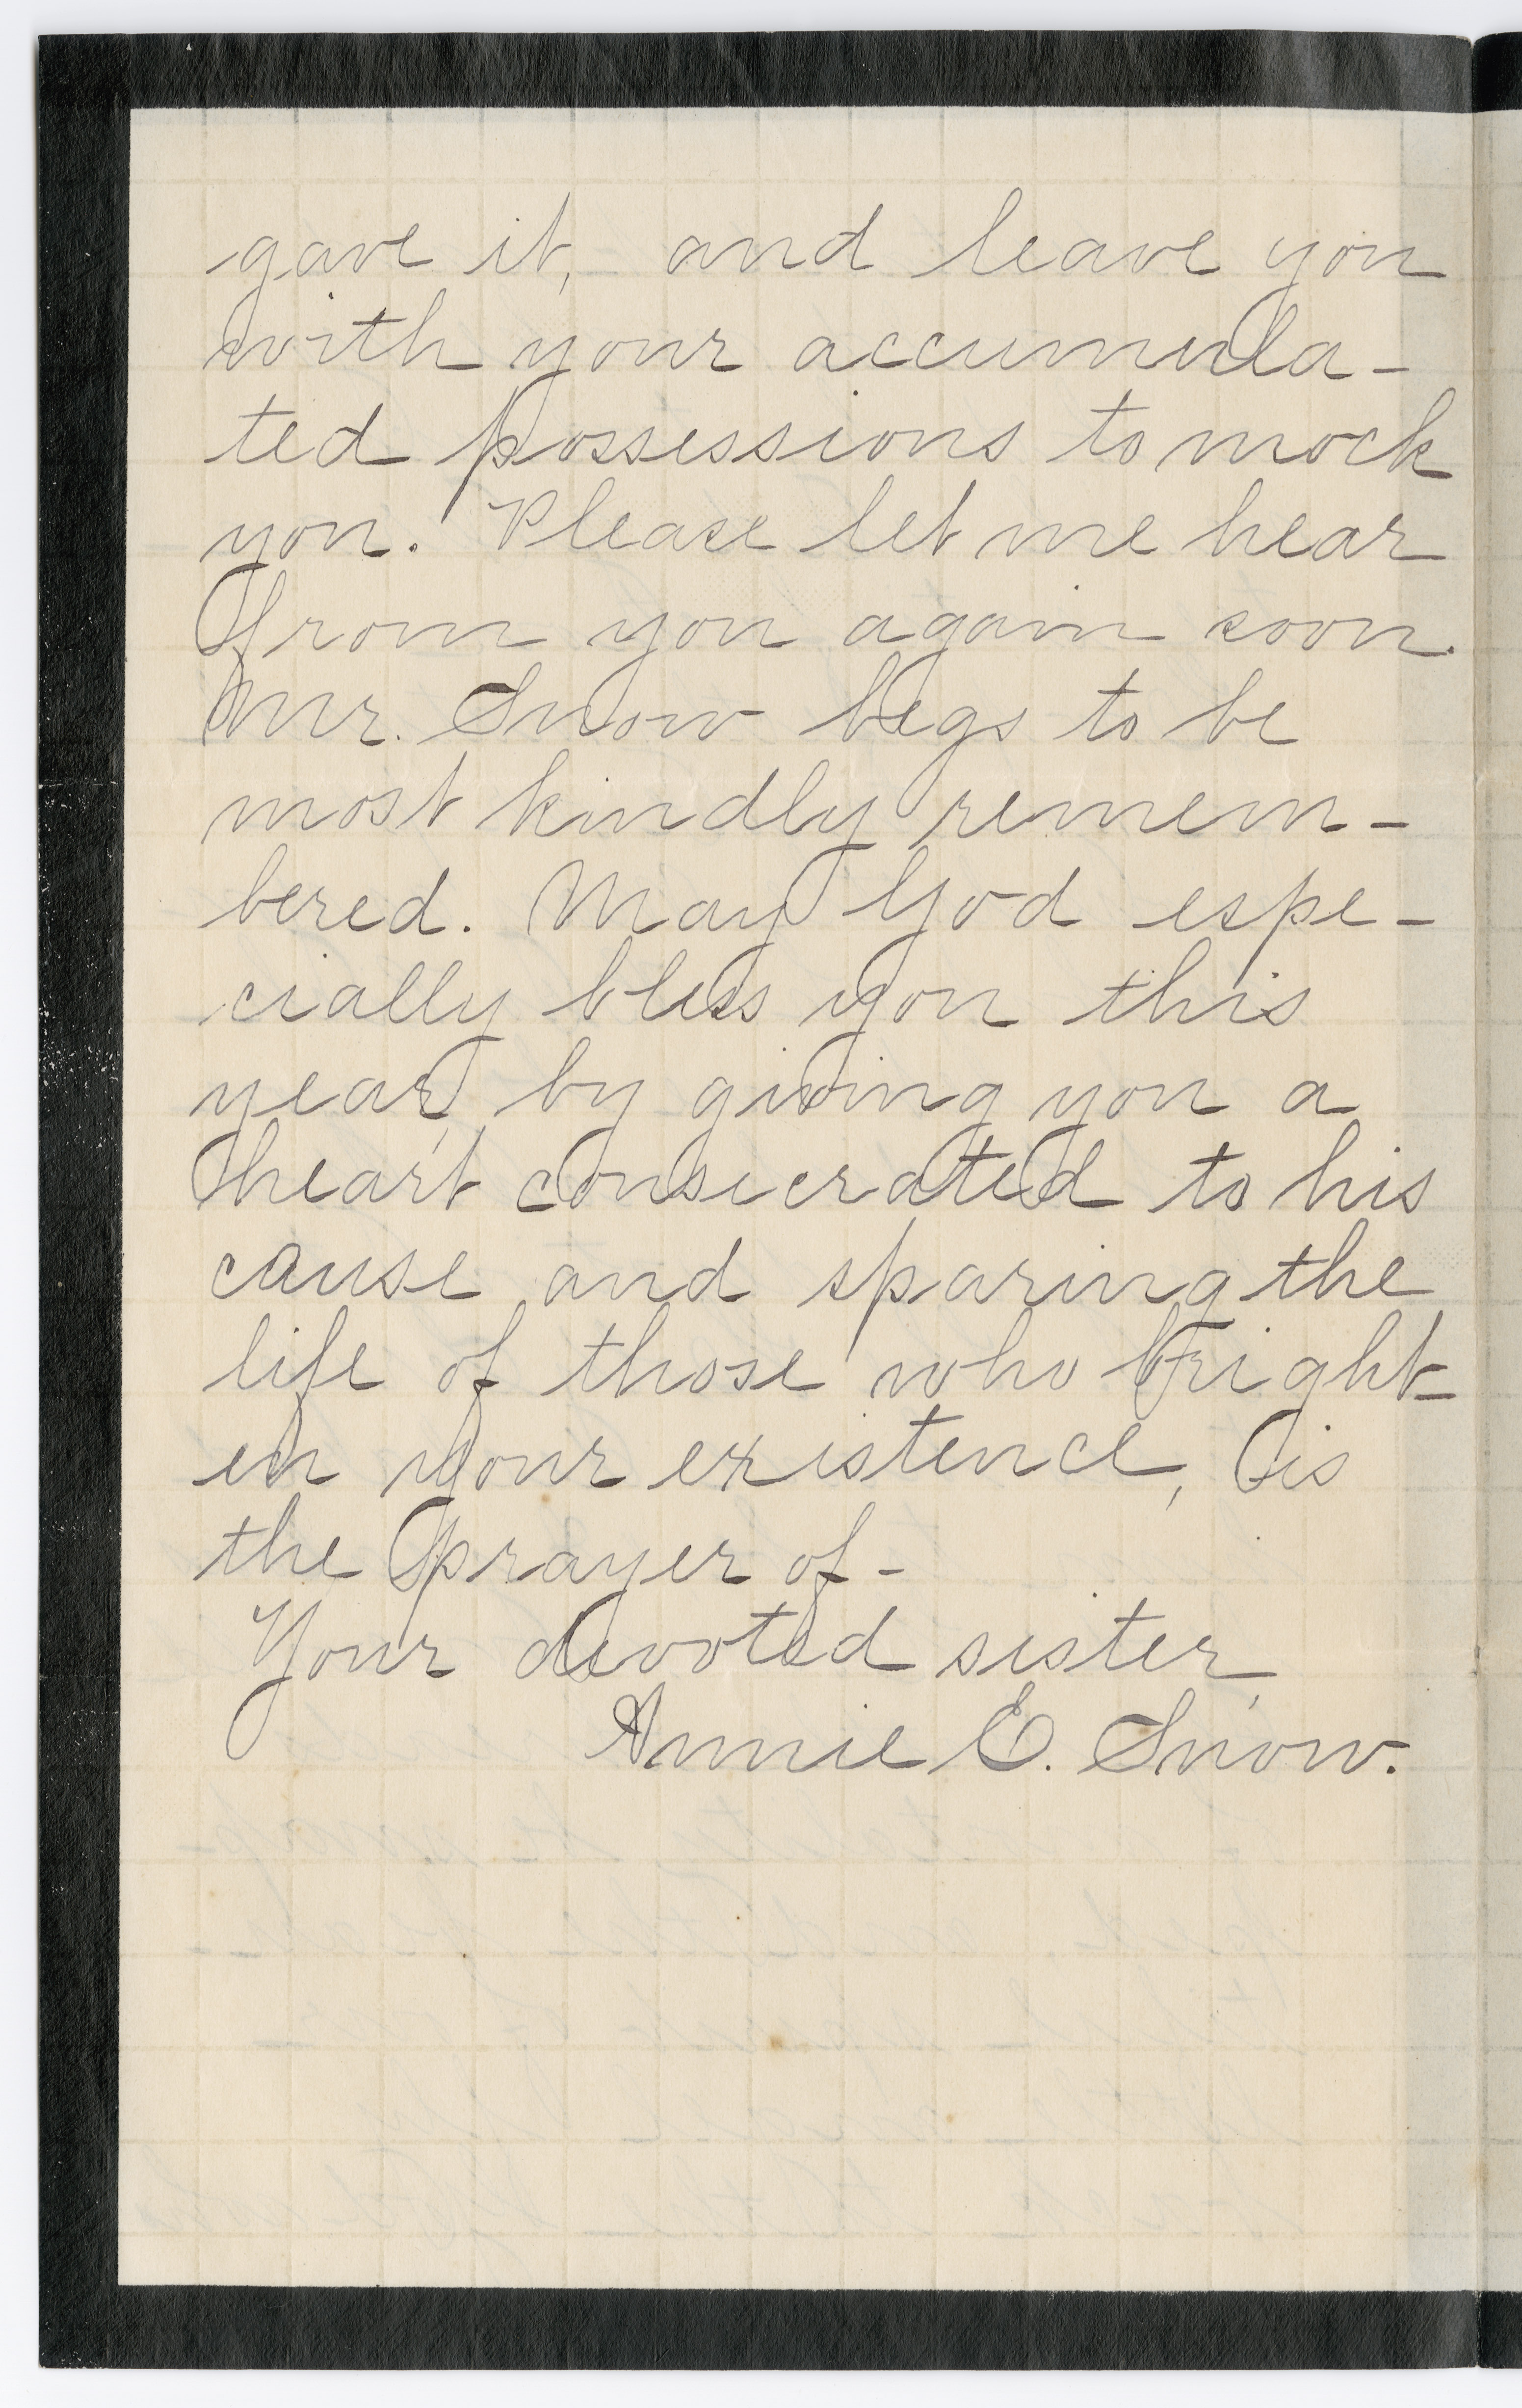 gave it, and leave you
with your accumula-
ted possessions to mock
you. Please let me hear
from you again soon.
Mr. Snow begs to be
most kindly remem-
bered. May God espe-
cially bless you this
year, by giving you a
heart consecrated to his
cause and sparing the
life of those who bright-
en your existence, is
the prayer of-
Your devoted sister,
Annie E. Snow.